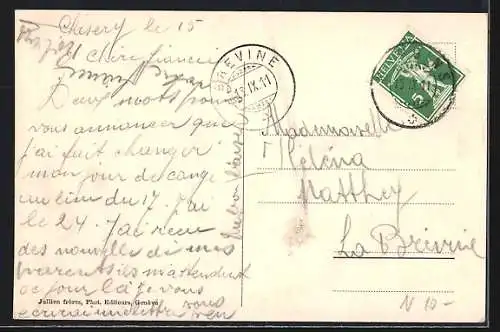 Chesery le 15
chère fiancée
Deux mots pour
vous annoncer que
j'ai fait changer
mon jour de congé
au lieu du 17. j'ai
le 24. J'ai reçu
des nouvelle di mes
parents ils m'attendent
ce jour là je vous
écrirai une lettre
vous
BREVINE
15.IX.11
HELVETIA
5
Mademoiselle
Héléna
Matthey
La Brévine
N 10-
Jullien frères, Phot. Editeurs, Genève